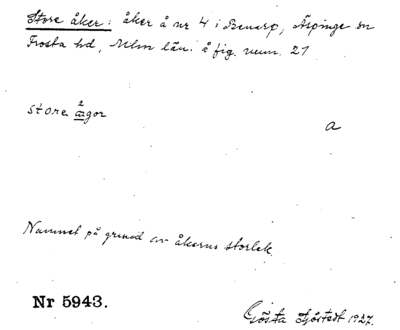 Store åker: åker å nr 4 i Benarp, Äspinge sn
Frosta hd, Mlm län. å fig. num. 21
store ægor
2
a
Namnet på grund av åkerns storlek.
Nr 5943.
Gösta Sjöstedt 1927.